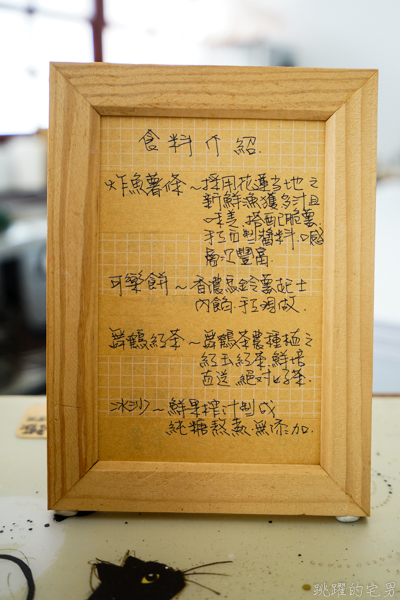 食料介紹.
炸魚薯條~採用花蓮當地之
新鮮漁獲多汁且
味美.搭配脆薯.
手工西型醬料.
豐富
可樂餅~香濃馬鈴薯起士
內餡.手工限做.
舞鶴紅茶~舞鶴茶農種植之
紅玉紅茶.鮮培
直送.絕對好茶.
冰沙~鮮果榨汁製成
純糖熬煮.無添加.
跳躍的宅男